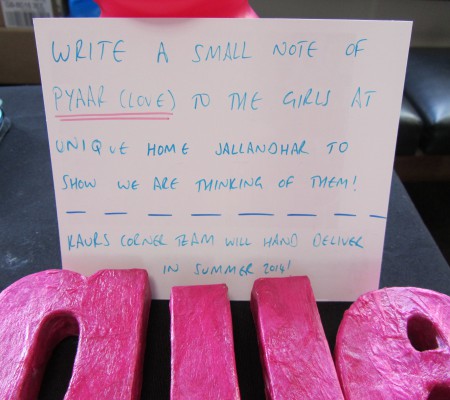 WRITE A SMALL NOTE OF
PYAAR (LOVE) TO THE GIRLS AT
UNIQUE HOME JALLANDHAR TO
SHOW WE ARE THINKING OF THEM!
KAURS CORNER TEAM WILL HAND DELIVER
IN SUMMER 2014!